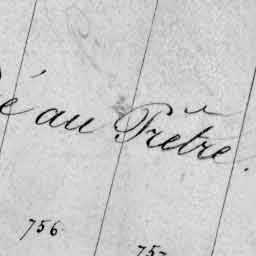 é au Prêtre.
756.
757